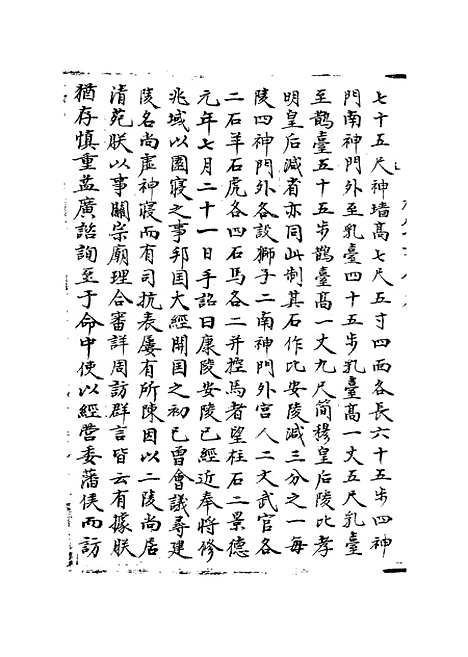 七十五尺神墻高七尺五寸四面各長六十五步四神
門南神門外至乳臺四十五步乳臺高一丈五尺乳臺
至鵲臺五十五步鵲臺高一丈九尺簡穆皇后陵比孝
明皇后減者亦同此制其石作比安陵減三分之一每
陵四神門外各設獅子二南神門外宮人二文武官各
二石羊石虎各四石馬各二并控馬者望柱石二景德
元年七月二十一日手詔曰康陵安陵已經近奉將修
兆域以園寢之事邦国大經開国之初已曽會議尋建
陵名尚虛神寢而有司抗表屢有所陳因以二陵尚居
清苑朕以事關宗廟理合審詳周訪群言皆云有據朕
猶存慎重益廣諮詢至于命中使以經營委藩侯而訪